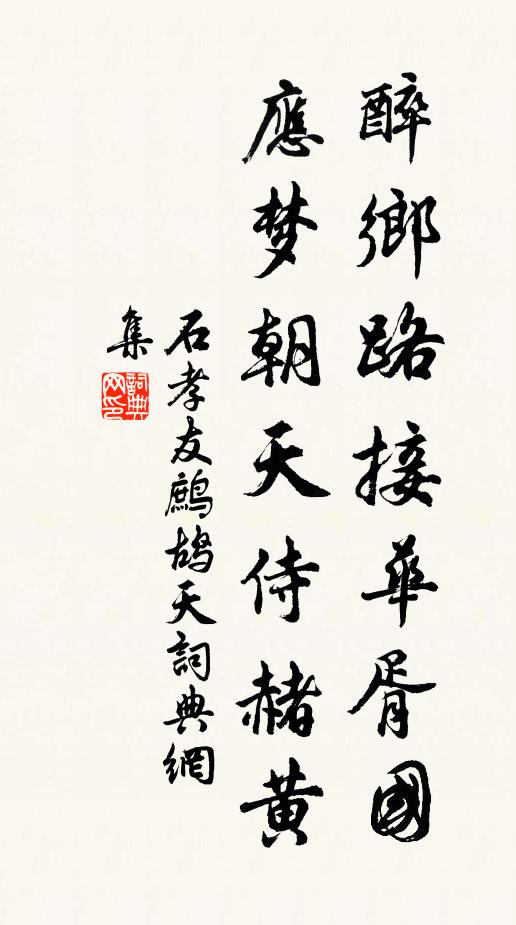 醉鄉路接華胥國
應梦朝天侍赭黄
石孝友鷓鴣天詞典網
集
詞典
网印